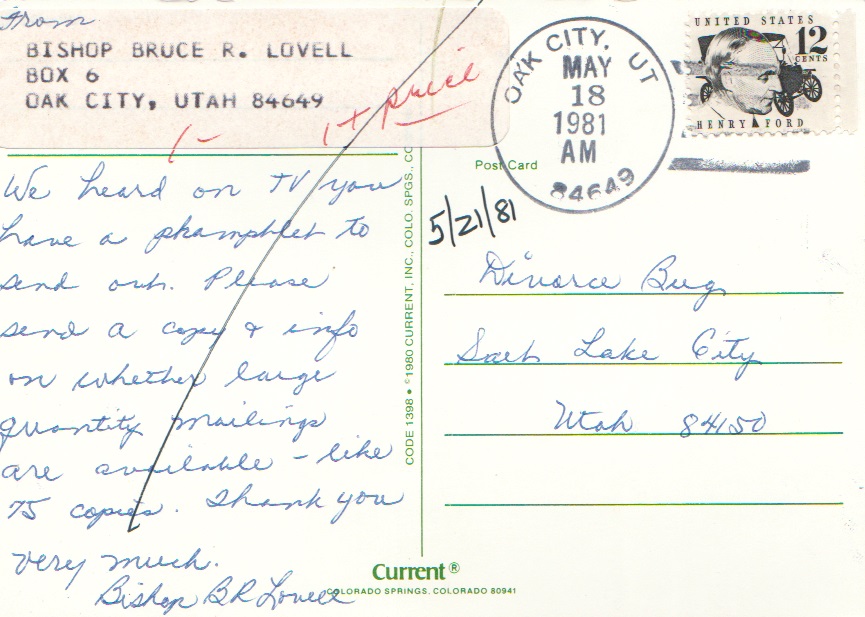 From
BISHOP BRUCE R. LOVELL
BOX 6
OAK CITY, UTAH 84649
1-
1 + price
We heard on TV you
have a phamphlet to
send out. Please
send a copy & info
on whether large
quantity mailings
are available - like
75 copies. Thank you
very much.
Bishop BR Lovell
CODE 1398 • ©1980 CURRENT, INC., COLO. SPGS., CO
OAK CITY, UT
MAY
18
1981
AM
84649
UNITED STATES
12
CENTS
HENRY FORD
Post Card
5/21/81
Divorce Bug
Salt Lake City
Utah 84150
Current®
COLORADO SPRINGS, COLORADO 80941